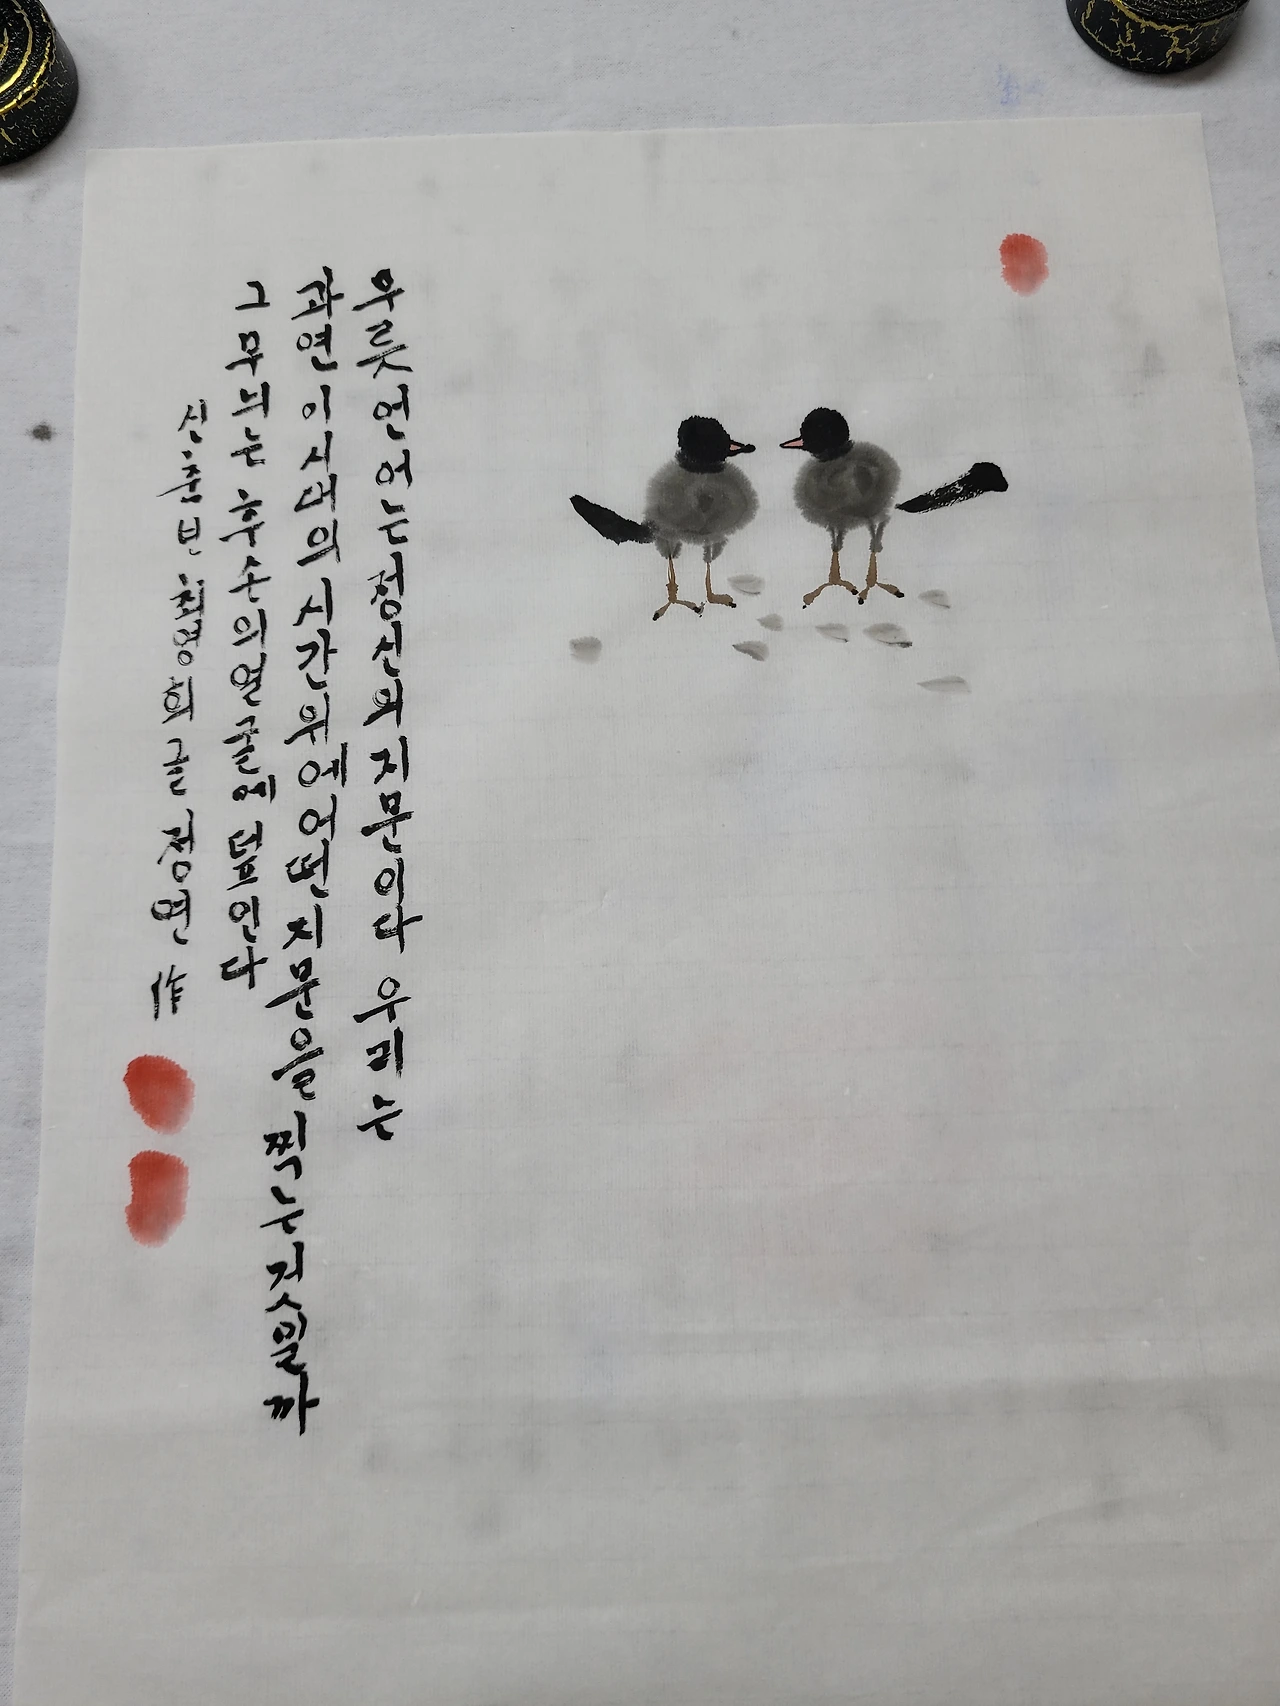 무릇 언어는 정신의 지문이다 우리는
과연 이 시대의 시간 위에 어떤 지문을 찍는 것일까
그 무늬는 후손의 얼굴에 덮인다
신춘보 최명희 글 정연 作